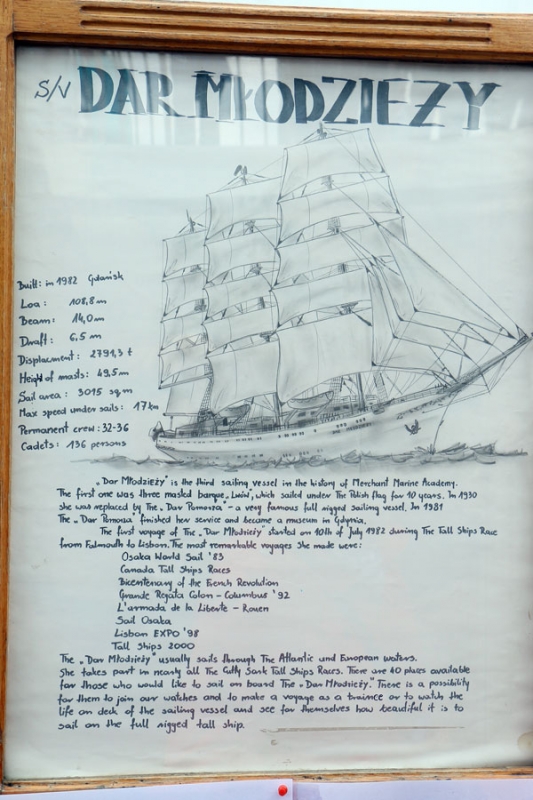 S/V DAR MŁODZIEŻY
Built: in 1982 Gdańsk
Loa: 108,8 m
Beam: 14,0 m
Draft: 6,5 m
Displacment: 2791,3 t
Height of masts: 49,5 m
Sail area: 3015 sq.m
Max speed under sails: 17 kn
Permanent crew: 32-36
Cadets: 136 persons
„Dar Młodzieży" is the third sailing vessel in the history of Merchant Marine Academy.
The first one was three masted barque „Lwów", which sailed under The Polish flag for 10 years. In 1930
she was replaced by The „Dar Pomorza" – a very famous full rigged sailing vessel. In 1981
The „Dar Pomorza" finished her service and became a museum in Gdynia.
The first voyage of The „Dar Młodzieży" started on 10th of July 1982 during The Tall Ships Race
from Falmouth to Lisbon. The most remarkable voyages she made were:
Osaka World Sail '83
Canada Tall Ships Races
Bicentenary of the French Revolution
Grande Regata Colon – Columbus '92
L'armada de la Liberte – Rouen
Sail Osaka
Lisbon EXPO '98
Tall Ships 2000
The „Dar Młodzieży" usually sails through The Atlantic and European waters.
She takes part in nearly all The Cutty Sark Tall Ships Races. There are 40 places available
for those who would like to sail on board The „Dar Młodzieży". There is a possibility
for them to join our watches and to make a voyage as a trainee or to watch the
life on deck of the sailing vessel and see for themselves how beautiful it is to
sail on the full rigged tall ship.